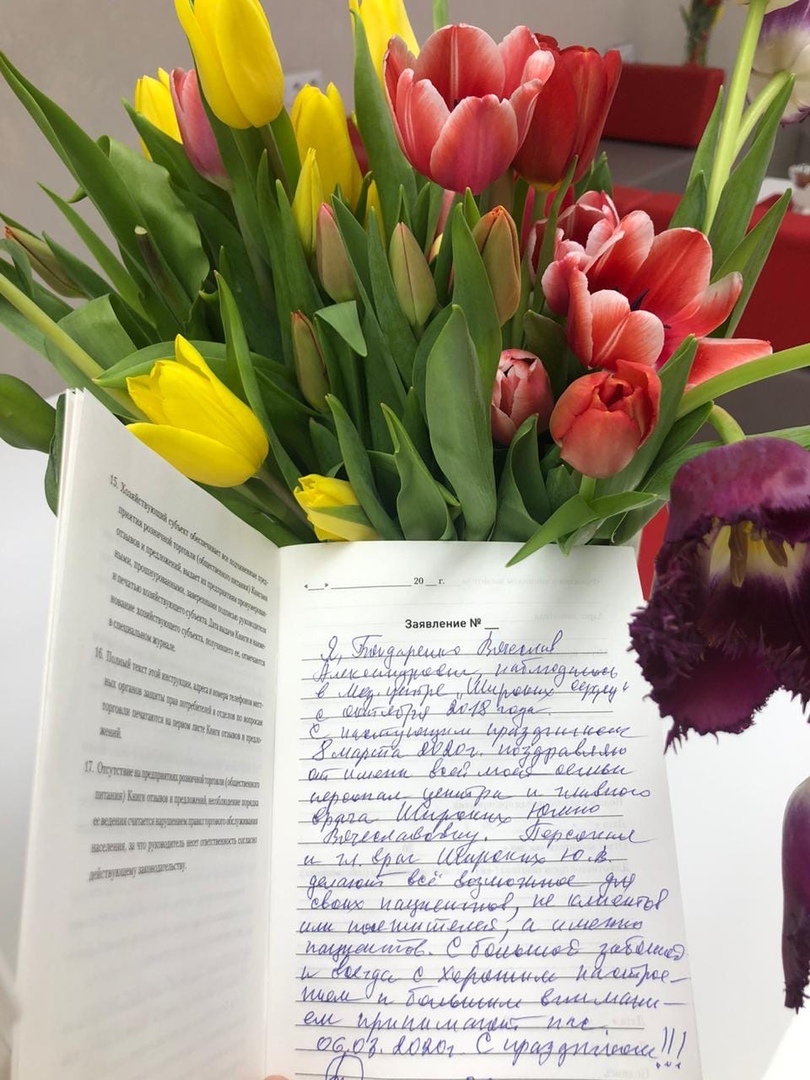 15. Хозяйствующий субъект обеспечивает все подчиненные пред-
приятия розничной торговли (общественного питания) Книгами
отзывов и предложений, выдает их предприятиям пронумерован-
ными, прошнурованными, заверенными подписью руководителя
и печатью хозяйствующего субъекта. Дата выдачи Книги и наиме-
нование хозяйствующего субъекта, получившего ее, отмечаются
в специальном журнале.
16. Полный текст этой инструкции, адреса и номера телефонов мест-
ных органов защиты прав потребителей и отделов по вопросам
торговли печатаются на первом листе Книги отзывов и предло-
жений.
17. Отсутствие на предприятиях розничной торговли (общественного
питания) Книги отзывов и предложений, несоблюдение порядка
ее ведения считается нарушением правил торгового обслуживания
населения, за что руководитель несет ответственность согласно
действующему законодательству.
«___» ____________ 20 __ г.
Заявление № __
Я, Бондаренко Вячеслав
Александрович, наблюдаюсь
в мед. центре „Широких сердец"
с октября 2018 года.
С наступающим праздником
8 марта 2020г. поздравляю
от имени всей моей семьи
персонал центра и главного
врача Широких Юлию
Вячеславовну. Персонал
и гл. врач Широких Ю.В.
делают всё возможное для
своих пациентов, не клиентов
или посетителей, а именно
пациентов. С большой заботой
и всегда с хорошим настрое-
нием и большим внимани-
ем принимают нас.
06.03.2020г. С праздником!!!